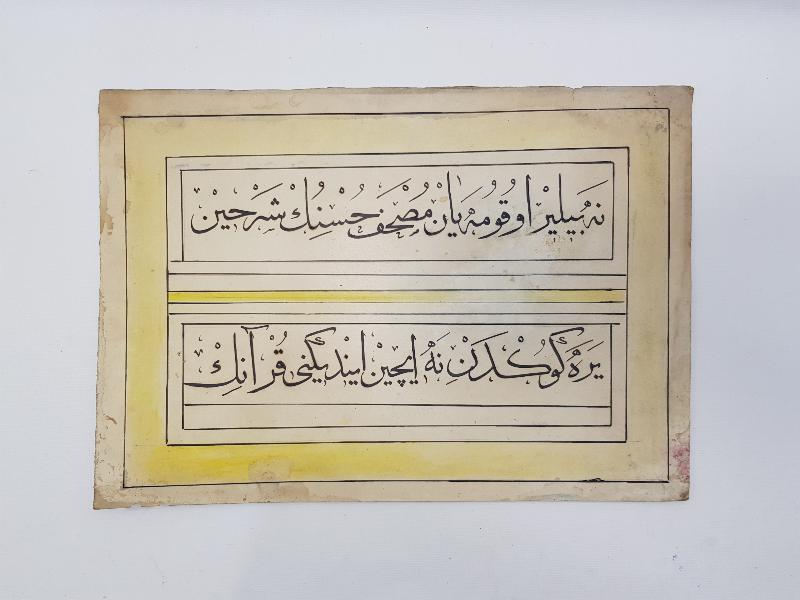 نه بيلير اوقومه يان مصحف حسنك شرحين
يره كوكدن نه ايچين اينديكنى قرآنك